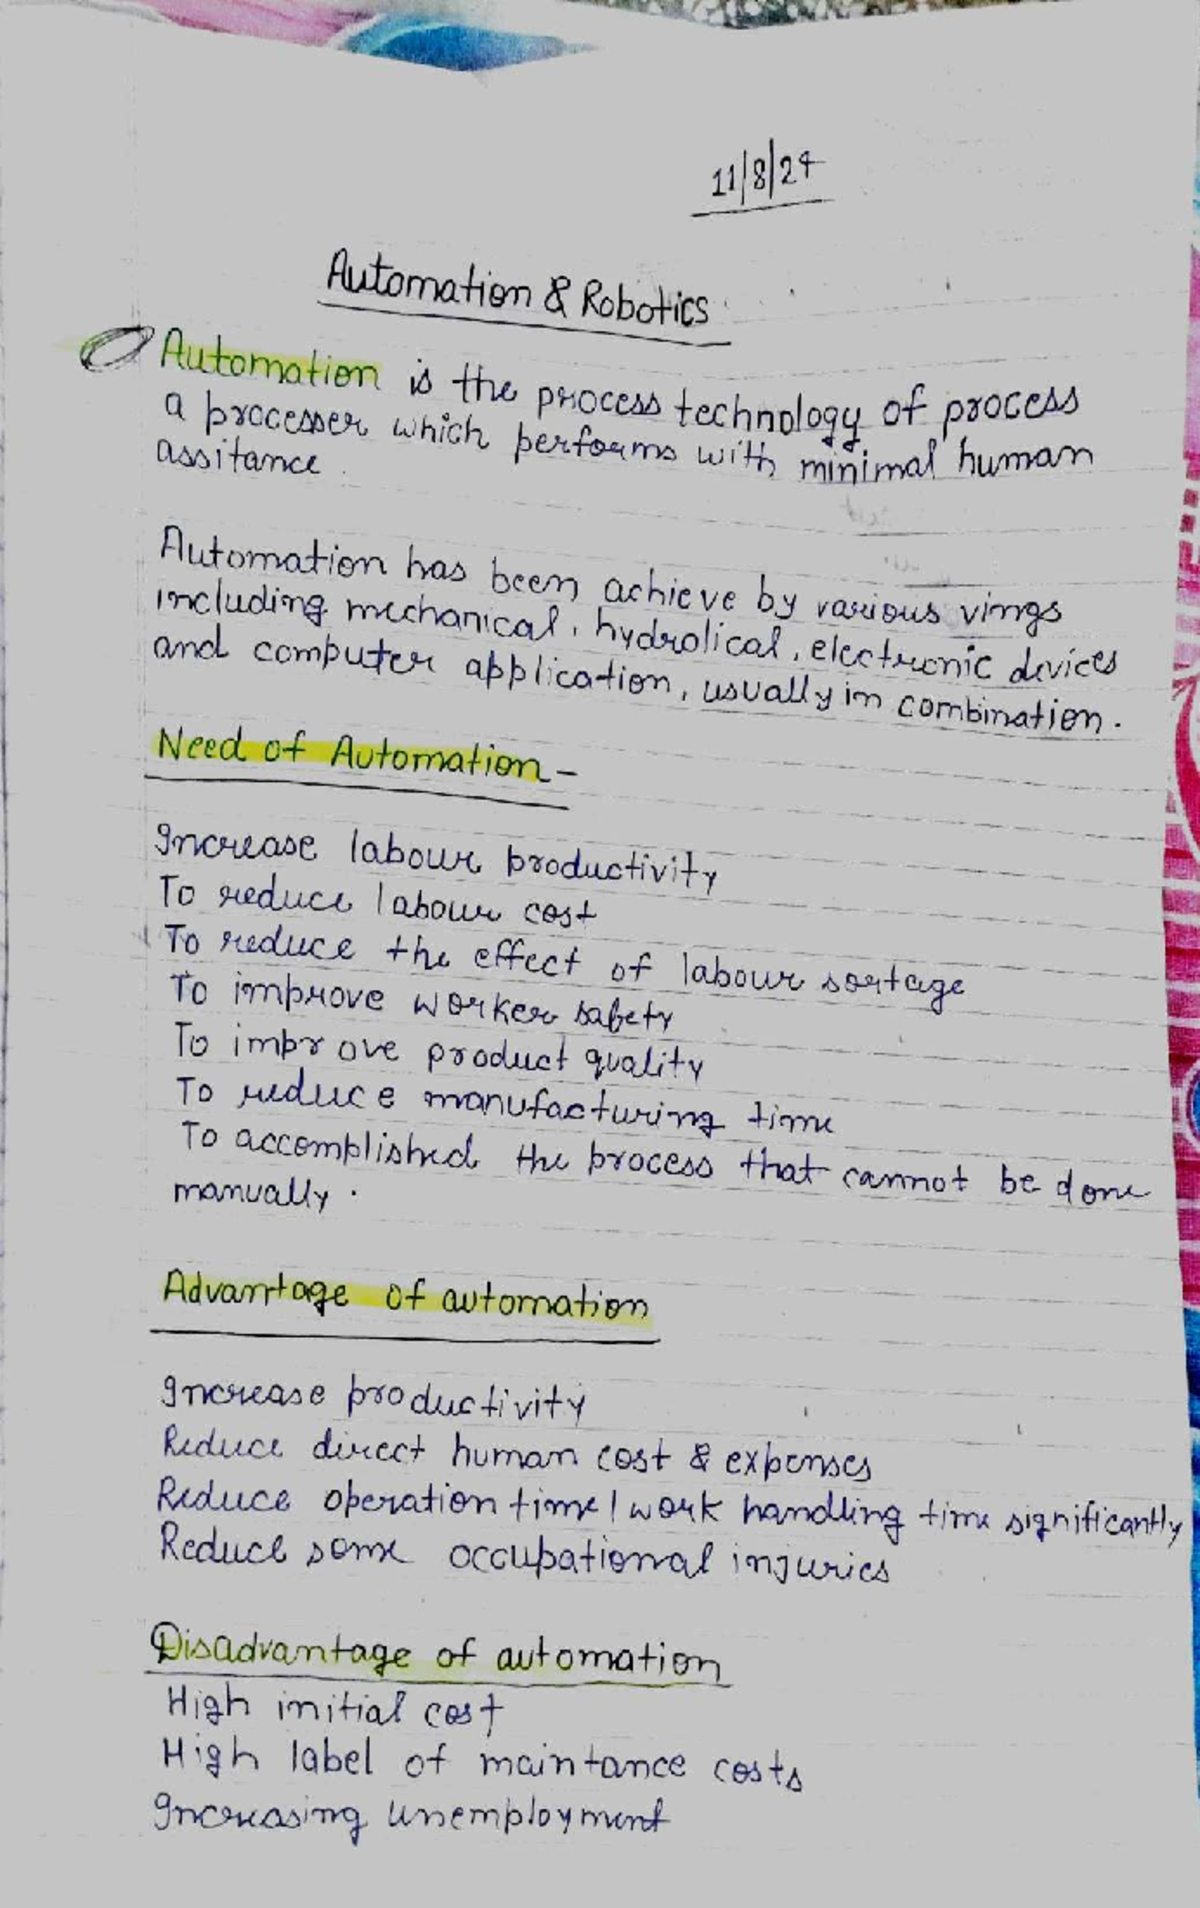 11/8/24
Automation & Robotics
Automation is the process technology of process
a processer which performs with minimal human
assitance.
Automation has been achieve by various vings
including mechanical, hydrolical, electronic devices
and computer application, usually in combination.
Need of Automation -
Increase labour productivity
To reduce labour cost
To reduce the effect of labour sortage
To improve worker safety
To improve product quality
To reduce manufacturing time
To accomplished the process that cannot be done
manually.
Advantage of automation
Increase productivity
Reduce direct human cost & expenses
Reduce operation time/work handling time significantly
Reduce some occupational injuries
Disadvantage of automation
High initial cost
High label of maintance costs
Increasing unemployment